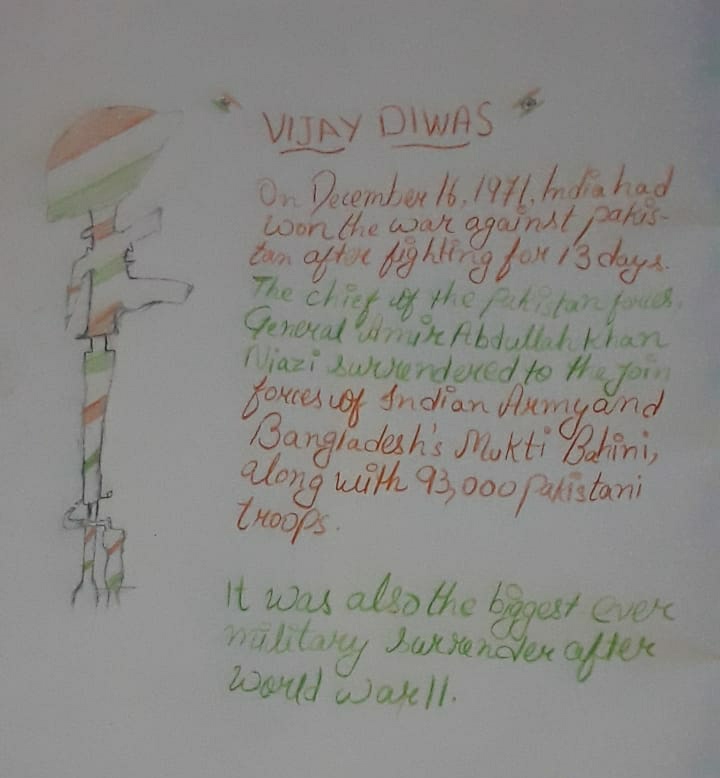 VIJAY DIWAS
On December 16, 1971, India had
won the war against pakis-
tan after fighting for 13 days.
The chief of the pakistan forces,
General Amir Abdullah Khan
Niazi surrendered to the join
forces of Indian Army and
Bangladesh's Mukti Bahini,
along with 93,000 pakistani
troops.
It was also the biggest ever
military surrender after
world war II.